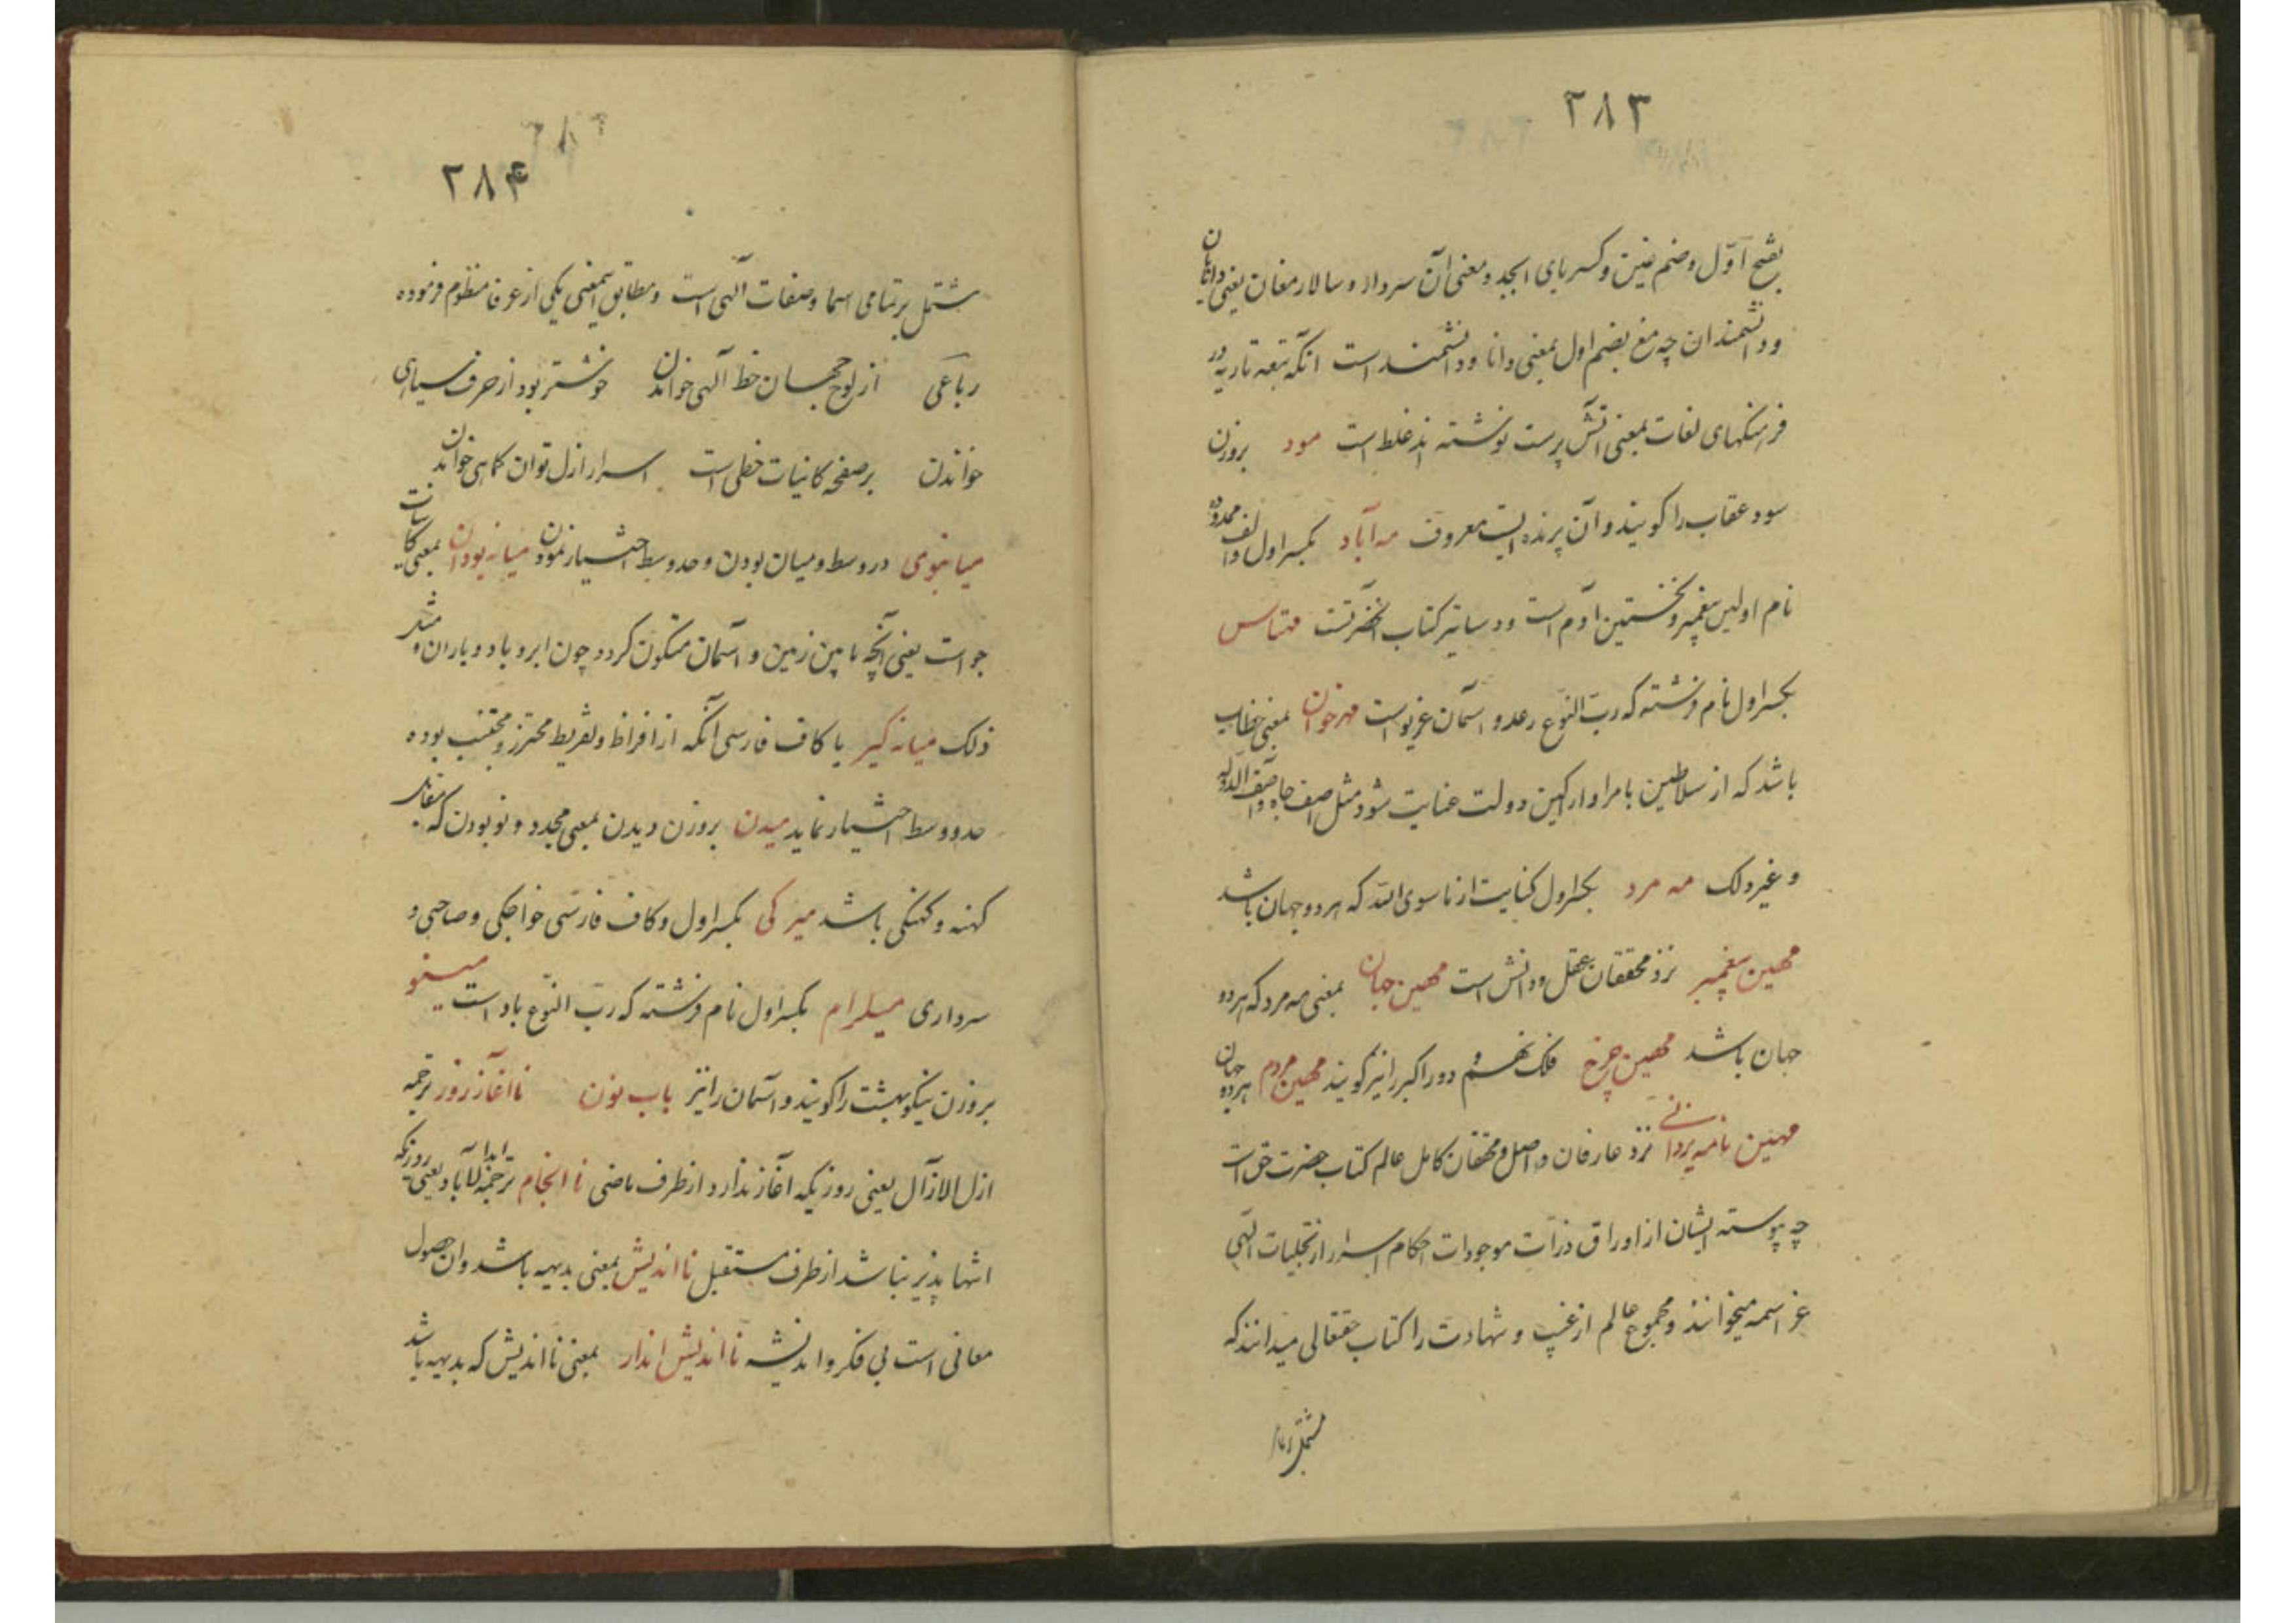 ۲۸۳
بفتح اول و ضم غین و کسر بای ابجد و معنی آن سردار و سالار مغان یعنی دانایان
و دانشمندان چه مغ بضم اول بمعنی دانا و دانشمند است انکه تبعه تازیه در
فرهنکهای لغات بمعنی آتش پرست نوشته اند غلط است مود بروزن
سود عقاب را کویند و آن پرنده ایست معروف مه آباد بکسر اول و الف ممدوده
نام اولین پیغمبر و نخستین آدم است و دساتیر کتاب آنحضرتست مهتاس
بکسر اول نام فرشته که رب النوع رعد و آسمان غریو است مهرخوان بمعنی خطاب
باشد که از سلاطین بامرا و اراکین دولت عنایت شود مثل آصف جاه و آصف الدوله
و غیر ذلک مه مرد بکسر اول کنایت از ما سوی الله که هر دو جهان باشد
مهین پیغمبر نزد محققان عقل و دانش است مهین جهان بمعنی مه مرد که هر دو
جهان باشد مهین چرخ فلک نهم و دور اکبر را نیز کویند مهین مردم هر دو جهان
مهین نامه یزدانی نزد عارفان واصل و محققان کامل عالم کتاب حضرت حق است
چه پیوسته ایشان از اوراق ذرات موجودات احکام اسرار از تجلیات الهی
عز اسمه میخوانند و مجموع عالم از غیب و شهادت را کتاب حقتعالی میدانند که
مشتمل بر تمام
۲۸۴
مشتمل بر تمامی اسما و صفات آلهی است و مطابق اینمعنی یکی از عرفا منظوم فرموده
رباعی از لوح جهان خط آلهی خواندن خوشتر بود از حرف سیاهی
خواندن بر صفحه کاینات خطی است اسرار ازل توان کماهی خواندن
میانبوی در وسط و میان بودن و حد وسط اختیار نمودن میانه بودان بمعنی کاینات
جو است یعنی آنچه مابین زمین و آسمان متکون کردد چون ابر و باد و باران و مثل
ذلک میانه گیر با کاف فارسی آنکه از افراط و تفریط محترز و مجتنب بوده
حد وسط اختیار نماید میدن بروزن دیدن بمعنی مجدد و نو بودن که مقابل
کهنه و کهنکی باشد میرکی بکسر اول و کاف فارسی خواجکی و صاحبی و
سرداری میلرام بکسر اول نام فرشته که رب النوع باد است مینو
بروزن نیکو بهشت را کویند و آسمان را نیز باب نون ناآغاز روز ترجمه
ازل الازآل یعنی روزیکه آغاز ندارد از طرف ماضی ناانجام ترجمه ابدا لآباد یعنی روزیکه
انتها پذیر نباشد از طرف مستقبل نااندیش بمعنی بدیهه باشد و ان حصول
معانی است بی فکر و اندیشه نااندیش اندار بمعنی نااندیش که بدیهه باشد